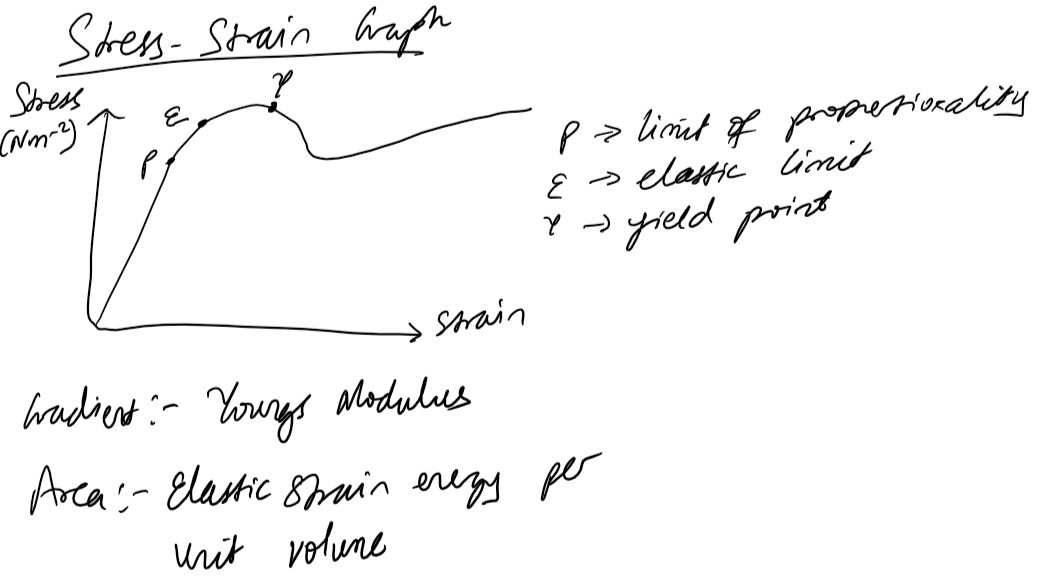 Stress-Strain Graph
Stress
(Nm⁻²)
Y
E
P
strain
P → limit of proportionality
E → elastic limit
Y → yield point
Gradient:- Youngs Modulus
Area:- Elastic strain energy per
unit volume